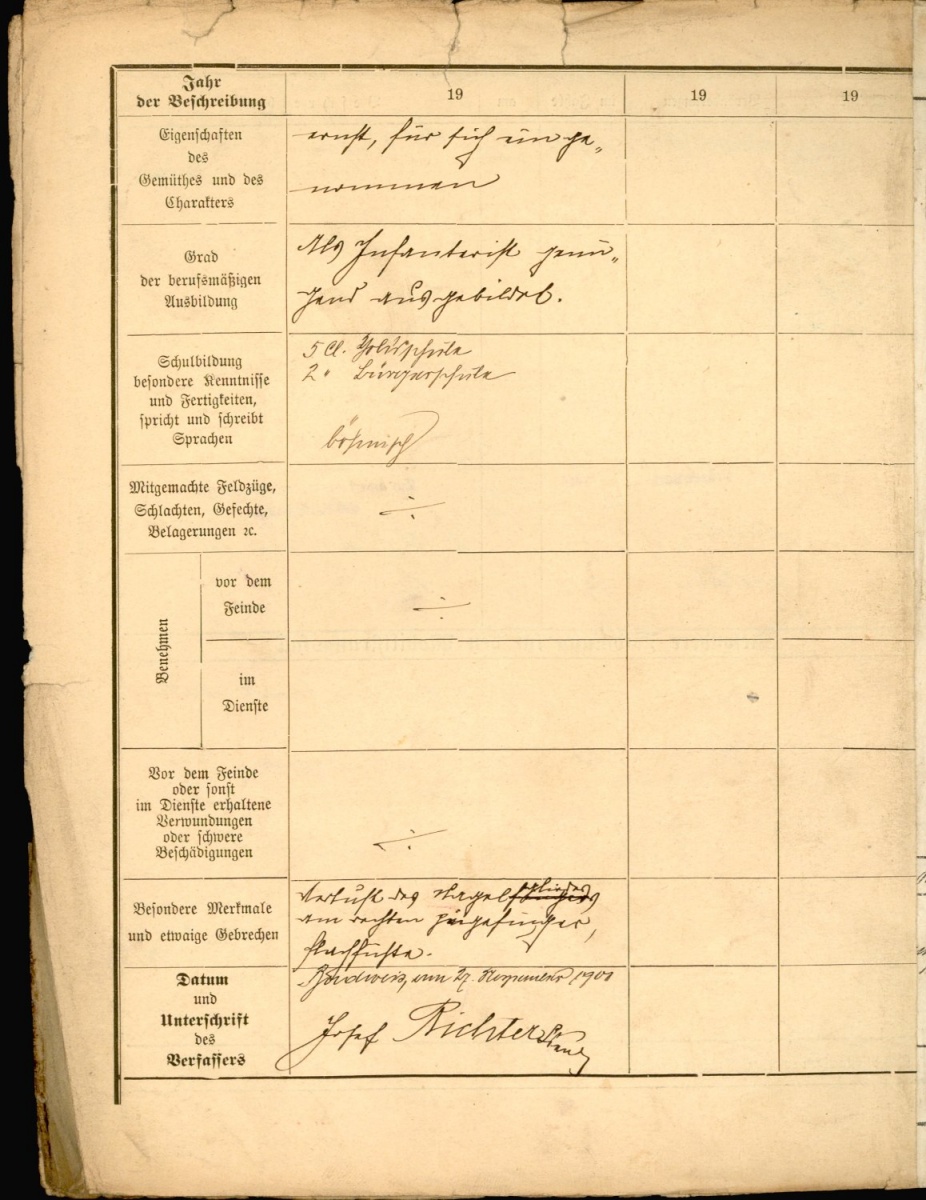 Jahr
der Beschreibung
19
19
19
Eigenschaften
des
Gemüthes und des
Charakters
ernst, für sich einge„
nommen
Grad
der berufsmäßigen
Ausbildung
Als Infanterist genü„
gend ausgebildet.
Schulbildung
besondere Kenntnisse
und Fertigkeiten,
spricht und schreibt
Sprachen
5 Cl. Volksschule
2 " Bürgerschule
böhmisch
Mitgemachte Feldzüge,
Schlachten, Gefechte,
Belagerungen ꝛc.
÷
Benehmen
vor dem
Feinde
÷
im
Dienste
Vor dem Feinde
oder sonst
im Dienste erhaltene
Verwundungen
oder schwere
Beschädigungen
÷
Besondere Merkmale
und etwaige Gebrechen
Verlust des Nagelgliedes
am rechten Zeigefinger,
Plachfüße.
Datum
und
Unterschrift
des
Verfassers
Budweis, am 27. November 1901
Josef Richter